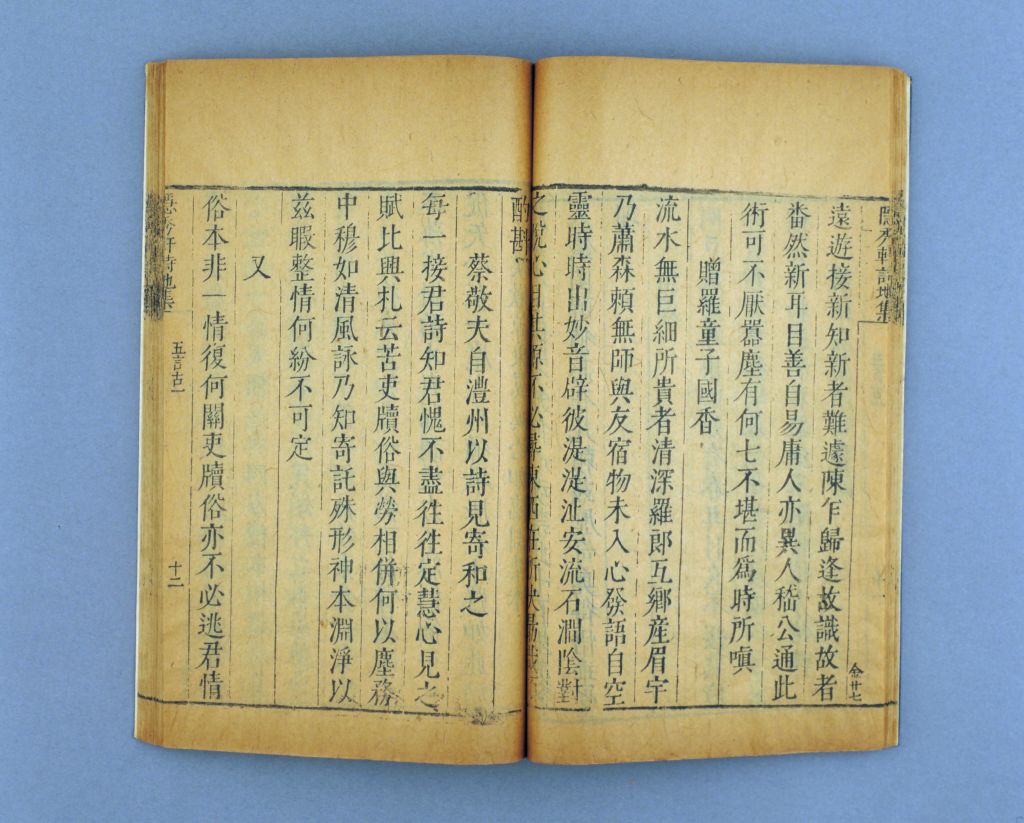 隱秀軒詩地集
金廿七
遠遊接新知新者難遽陳乍歸逢故識故者
畨然新耳目善自易庸人亦異人嵇公通此
術可不厭囂塵有何七不堪而爲時所嗔
贈羅童子國香
流水無巨細所貴者清深羅郎互鄉産眉宇
乃蕭森頼無師與友宿物未入心發語自空
靈時時出妙音辟彼湜湜沚安流石澗陰對
之悅心目其源不必尋東西在所決
酌斟
蔡敬夫自澧州以詩見寄和之
每一接君詩知君愧不盡徃徃定慧心見之
賦比興札云苦吏牘俗與勞相併何以塵務
中穆如清風詠乃知寄託殊形神本淵淨以
茲暇整情何紛不可定
又
俗本非一情復何關吏牘俗亦不必逃君情
隱秀軒詩地集
五言古一
十二